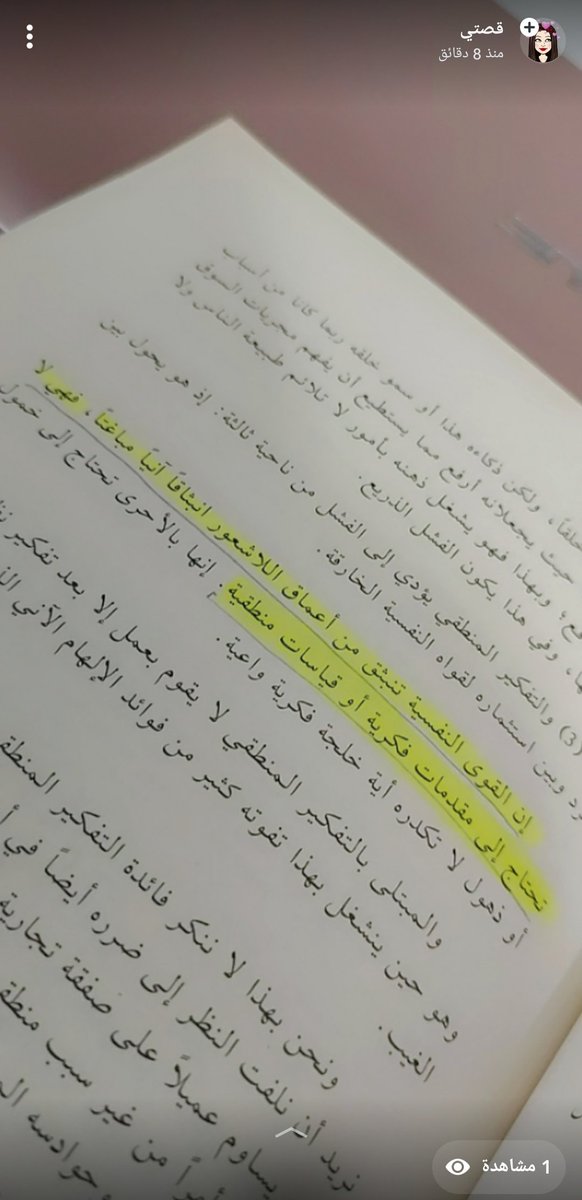 قصتي
منذ 8 دقائق
ولكن ذكاءه هذا أو سمو خلقه ربما كانا من أسباب
حيث يجعلانه أرفع مما يستطيع أن يفهم مجريات السوق
وبهذا فهو يشغل ذهنه بأمور لا تلائم طبيعة الناس ولا
وفي هذا يكون الفشل الذريع.
(3) والتفكير المنطقي يؤدي إلى الفشل من ناحية ثالثة: إذ هو يحول بين
وبين استثماره لقواه النفسية الخارقة.
إن القوى النفسية تنبثق من أعماق اللاشعور انبثاقاً آنياً مباغتاً، فهي لا
تحتاج إلى مقدمات فكرية أو قياسات منطقية؛ إنها بالأحرى تحتاج إلى خمول
أو ذهول لا تكدره أية خلجة فكرية واعية.
والمبتلى بالتفكير المنطقي لا يقوم بعمل إلا بعد تفكير
وهو حين ينشغل بهذا تفوته كثير من فوائد الإلهام الآني
الغيب.
ونحن بهذا لا ننكر فائدة التفكير
نريد أن نلفت النظر إلى ضرره أيضاً في
يساوم عميلاً على صفقة تجارية
من غير سبب
حوادسه
1 مشاهدة